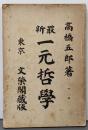 高橋五郎著
最新
一元哲學
東京 文榮閣蔵版